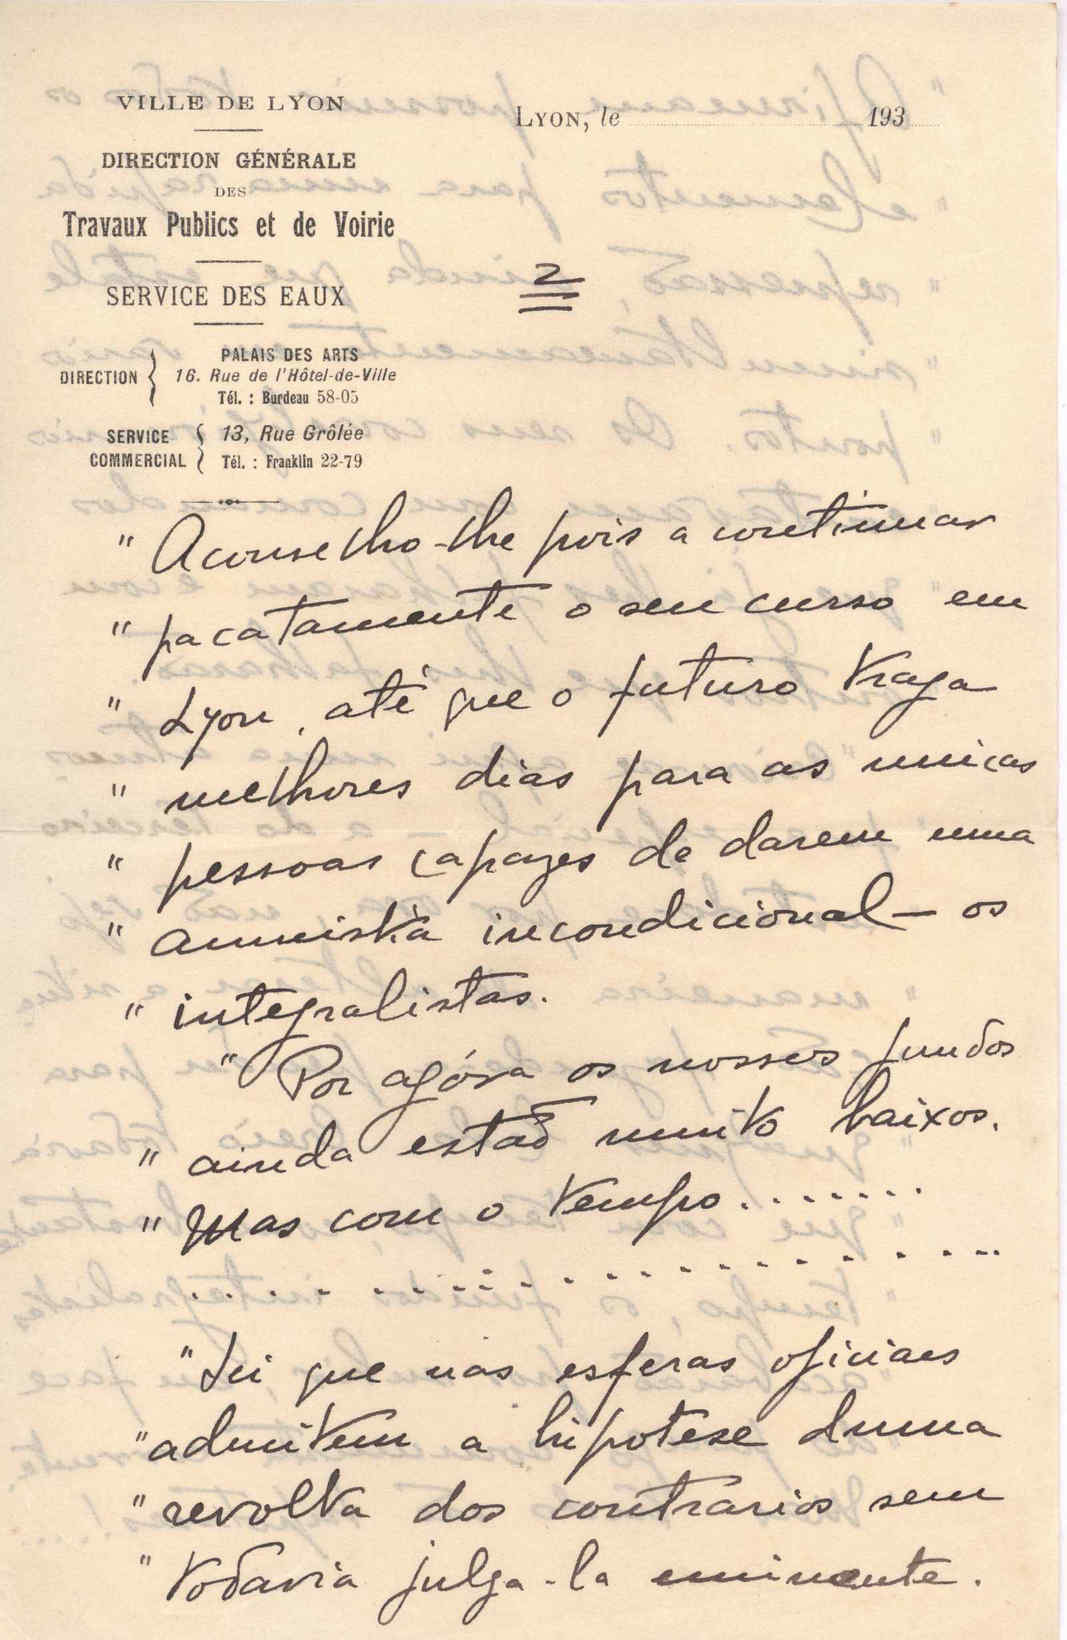 VILLE DE LYON
LYON, le 193
DIRECTION GÉNÉRALE
DES
Travaux Publics et de Voirie
SERVICE DES EAUX
2
DIRECTION
PALAIS DES ARTS
16. Rue de l'Hôtel-de-Ville
Tél. : Burdeau 58-05
SERVICE COMMERCIAL
13, Rue Grôlée
Tél. : Franklin 22-79
" Aconselho-lhe pois a continuar
" pacatamente o seu curso em
" Lyon, até que o futuro traga
" melhores dias para as unicas
" pessoas capazes de darem uma
" amnistia incondicional — os
" integralistas.
" Por agóra os nossos fundos
" ainda estaõ muito baixos.
" Mas com o tempo.......
. . . . . . . . . . . . . . . . . . . .
" Sei que nas esferas oficiaes
" admitem a hipotese duma
" revolta dos contrarios sem
" todavia julga-la eminente.